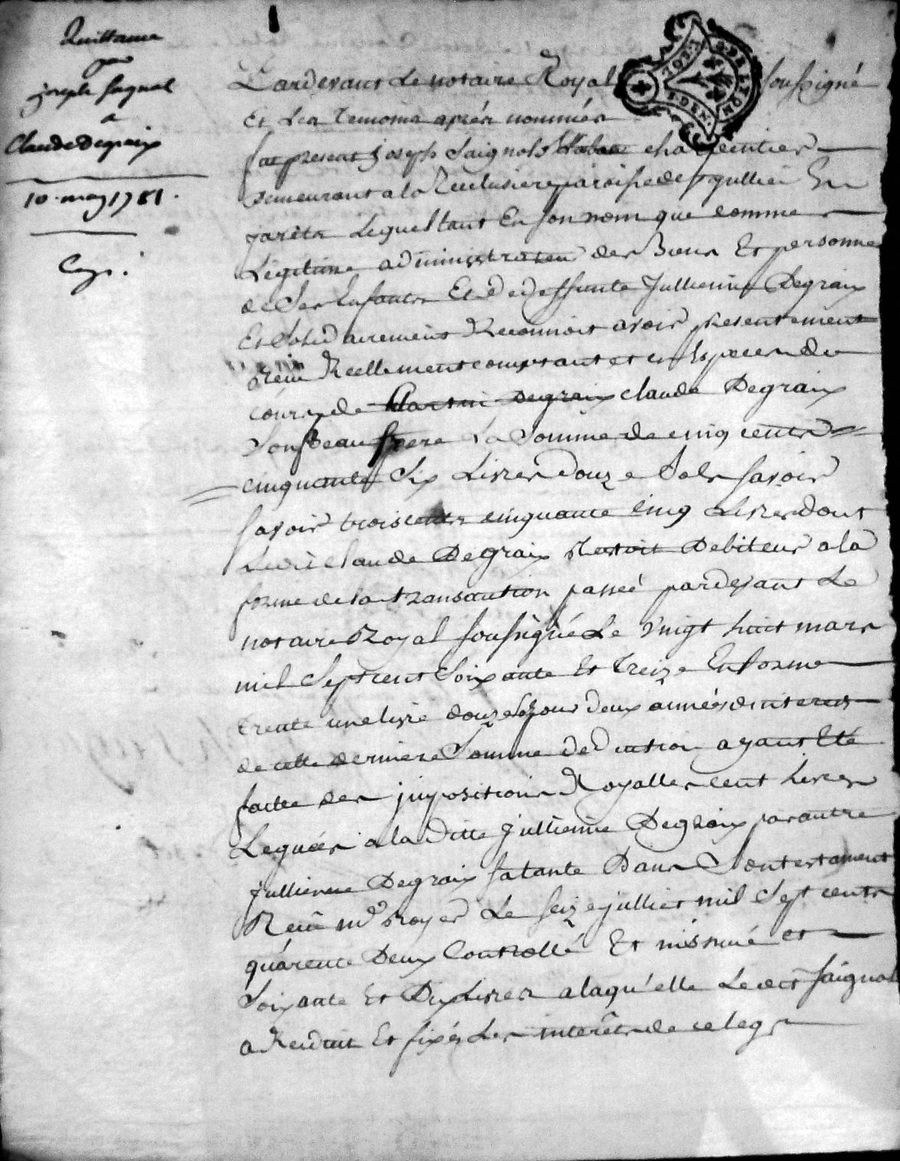 Quittance
par
joseph Sagnol
a
Claude Degraix
10. may 1781.
Pardevant Le notaire Royal soussigné
Et Les Temoins aprés nommés
fut present Joseph Saignol charpentier
demeurant a la paroisse de
jarêts Lequel tant En son nom que comme
Légitime administrateur des Biens Et personne
de Ses Enfants Et de deffunte Jullienne Degraix
Et Solidairement Reconnoit avoir presentement
Reçu Reellement comptant et en Especes du
cours de Claude Degraix
Son Beau frere La Somme de cinq cents
cinquante Six Livres douze Sols savoir
savoir trois cents cinquante cinq Livres dont
Ledit Claude Degraix Restoit Debiteur a la
forme de la transaction passée pardevant Le
notaire Royal soussigné Le vingt huit mars
mil Sept cent Soixante Et Treize En forme
trente une livre douze Sols pour deux années d'interets
de cette derniere Somme deduction ayant Eté
faitte des impositions Royalles cent livres
Legués a la ditte Jullienne Degraix par autre
Jullienne Degraix sa tante Dans Son testament
Reçu me Royer Le seize juillet mil Sept cents
quarente Deux Controllé Et insinué et
Soixante Et Dix Livres a laqu'elle Le dit Saignol
a Reduit Et fixés Les interêts de ce legs